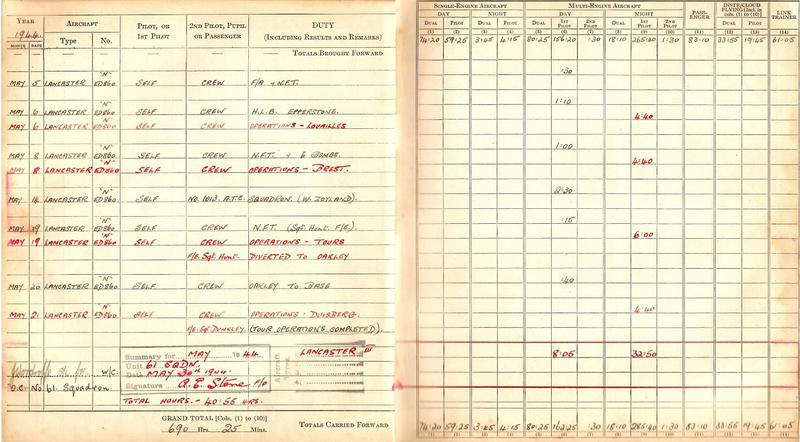 YEAR AIRCRAFT PILOT, OR 2ND PILOT, PUPIL DUTY
1944 1ST PILOT OR PASSENGER (INCLUDING RESULTS AND REMARKS)
MONTH DATE Type No.
TOTALS BROUGHT FORWARD
MAY 5 LANCASTER "N" ED860 SELF CREW F/A & N.F.T. ·30
MAY 6 LANCASTER "N" ED860 SELF CREW H.L.B. EPPERSTONE. 1·10
MAY 6 LANCASTER ED860 SELF CREW OPERATIONS - LOUAILLES 4:40
MAY 8 LANCASTER "N" ED860 SELF CREW N.F.T. & 6 BOMBS. 1:00
MAY 8 LANCASTER "N" ED860 SELF CREW OPERATIONS - BREST. 4:40
MAY 14 LANCASTER "N" ED860 SELF NO. 1013. A.T.C. SQUADRON. (W. ZOYLAND). 2:30
MAY 19 LANCASTER "N" ED860 SELF CREW N.F.T. (Sgt. Hont. F/E.) ·15
MAY 19 LANCASTER "N" ED860 SELF CREW OPERATIONS - TOURS 6:00
F/E. Sgt. Hont. DIVERTED TO OAKLEY
MAY 20 LANCASTER "N" ED860 SELF CREW OAKLEY TO BASE ·40
MAY 21 LANCASTER "N" ED860 SELF CREW OPERATIONS - DUISBERG. 4:40
DUNKLEY. (TOUR OPERATIONS COMPLETED).
Summary for MAY 1944 LANCASTER III 8:05 32:50
Unit 61 SQDN. Aircraft Types
W/C. Date MAY 30th 1944.
O.C. No. 61. Squadron. Signature A.E. Stone F/O
TOTAL HOURS - 40:55 HRS.
GRAND TOTAL [Cols. (1) to (10)]
690 Hrs. 25 Mins. TOTALS CARRIED FORWARD
SINGLE-ENGINE AIRCRAFT MULTI-ENGINE AIRCRAFT PASSENGER INSTR/CLOUD FLYING [Incl. in cols. (1) to (10)] LINK TRAINER
DAY NIGHT DAY NIGHT
DUAL PILOT DUAL PILOT DUAL 1ST PILOT 2ND PILOT DUAL 1ST PILOT 2ND PILOT DUAL PILOT
(1) (2) (3) (4) (5) (6) (7) (8) (9) (10) (11) (12) (13) (14)
74:20 59:25 3:45 4:15 80:25 156:20 :30 18:10 265:40 1:30 83:10 33:55 19:45 61:05
74:20 59:25 3:45 4:15 80:25 162:25 :30 18:10 285:40 1:30 83:10 33:55 19:45 61:05
(1) (2) (3) (4) (5) (6) (7) (8) (9) (10) (11) (12) (13) (14)